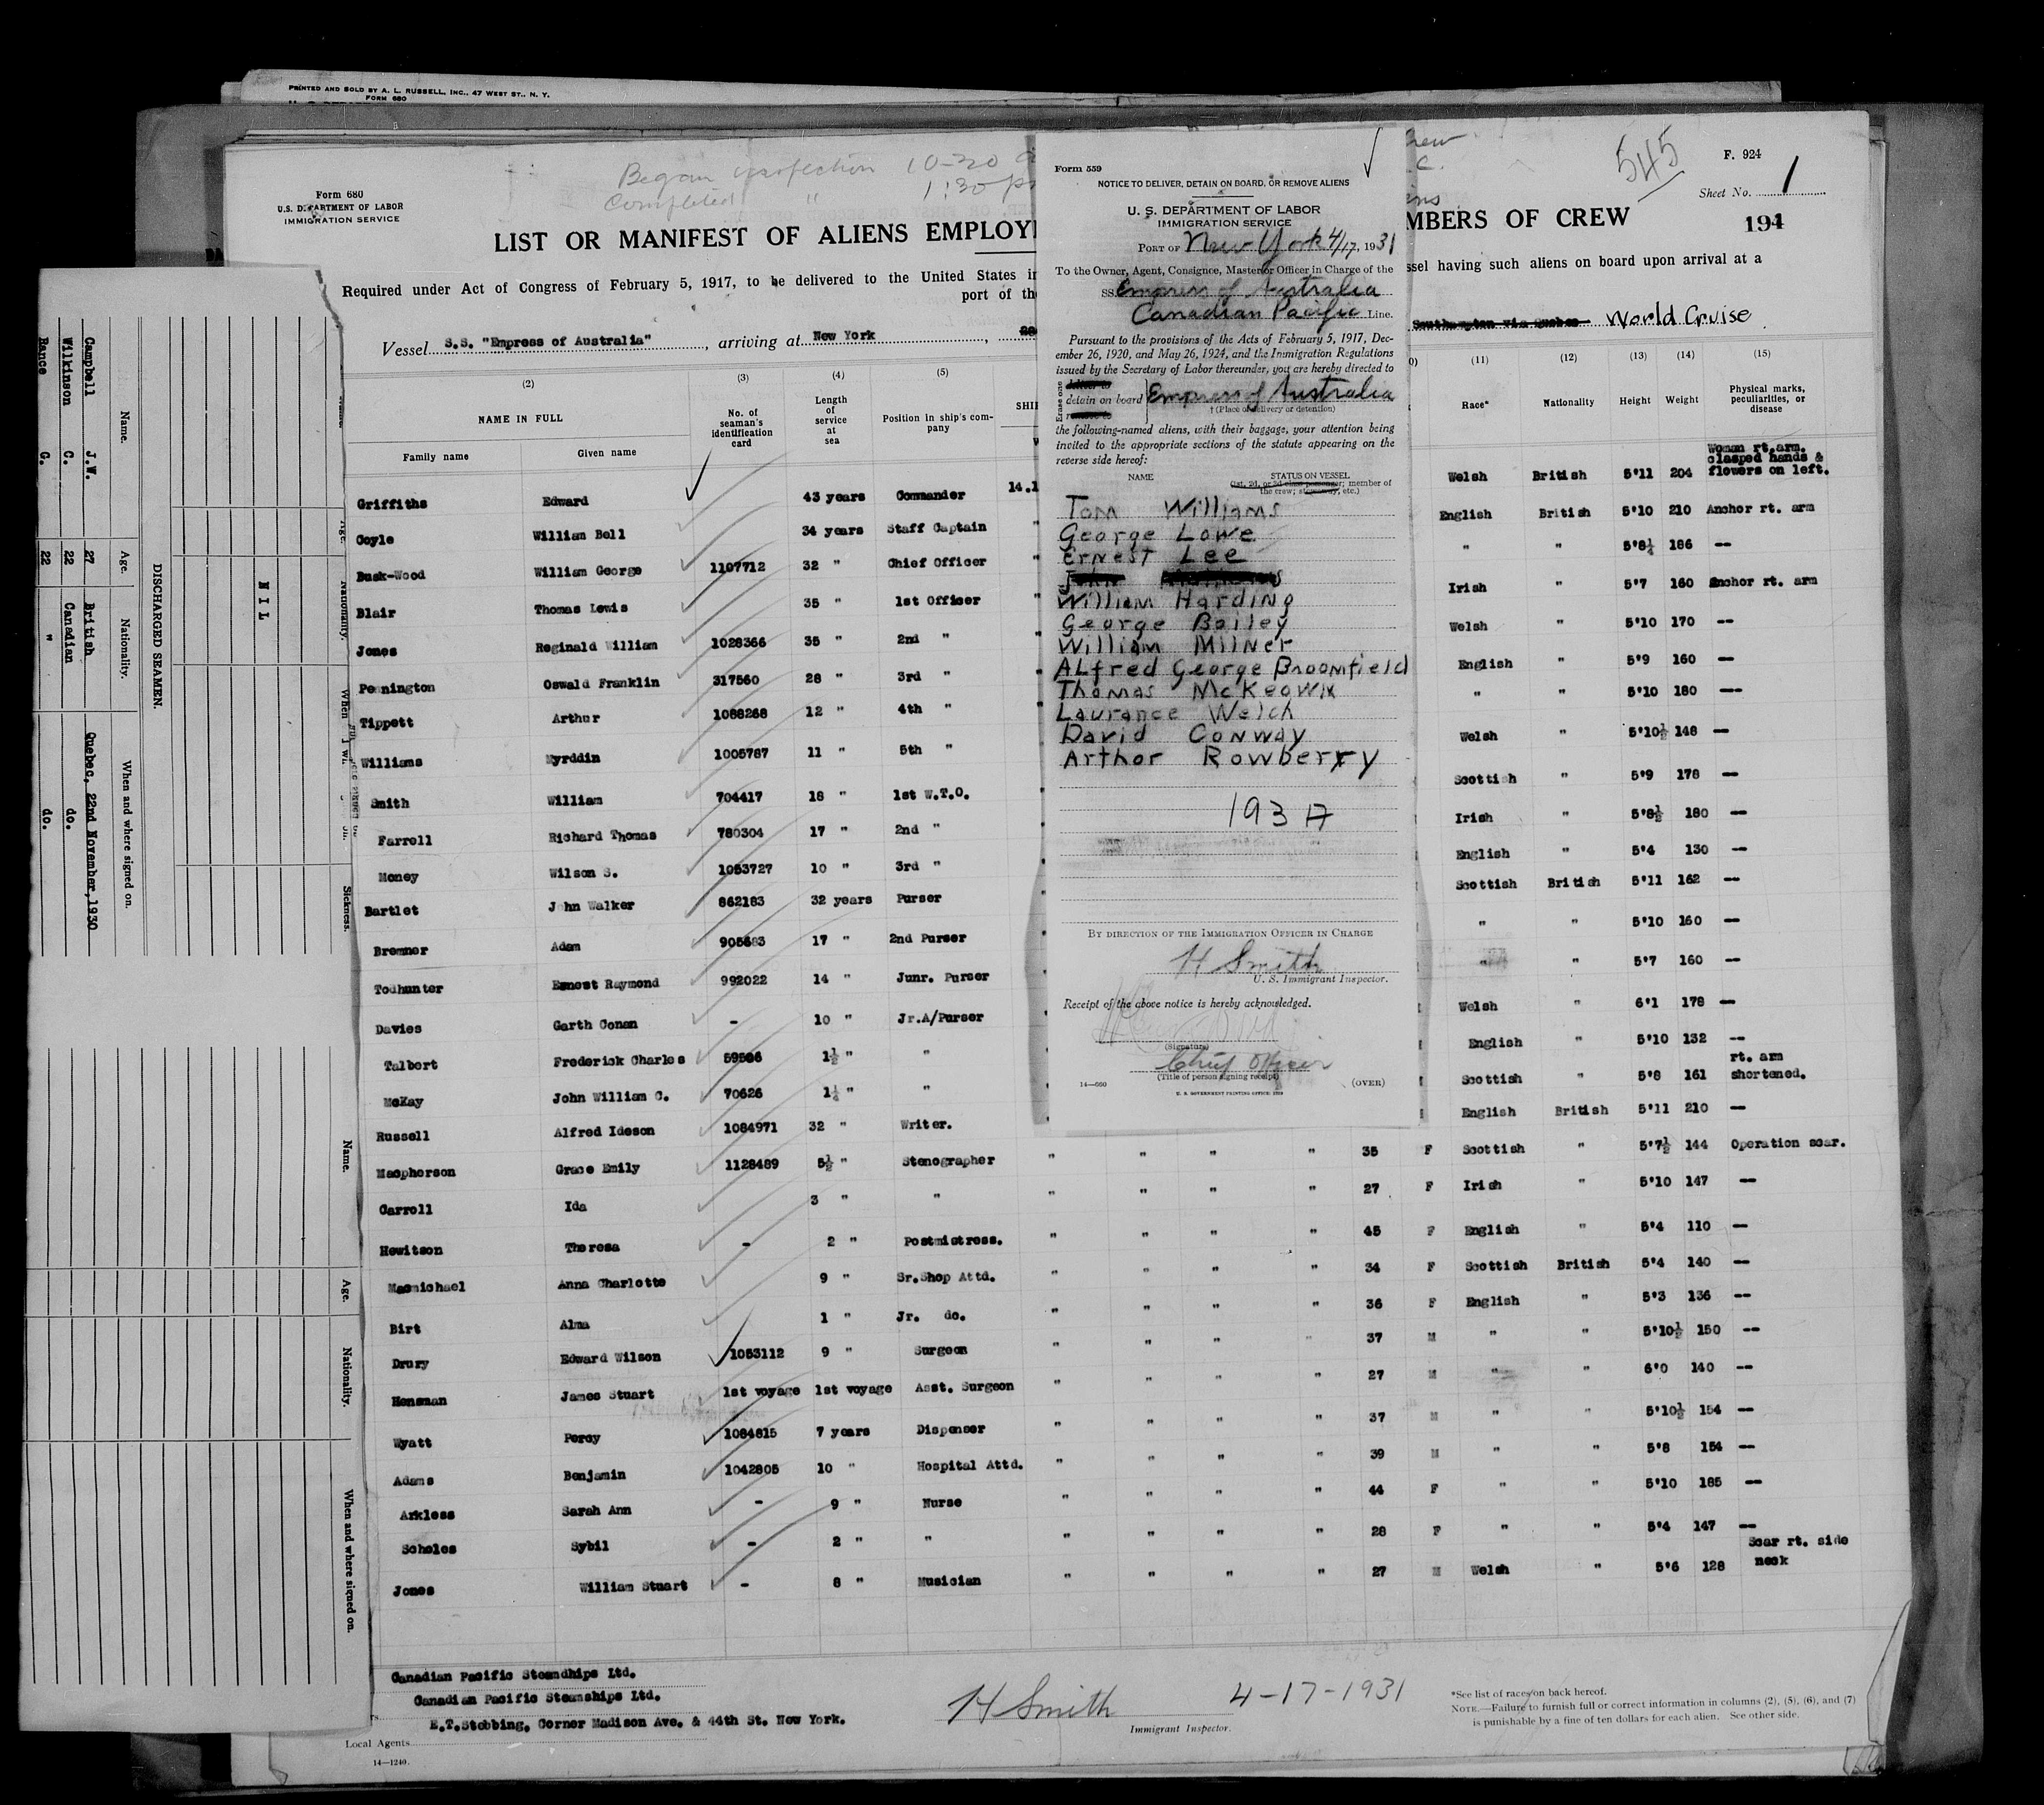 PRINTED AND SOLD BY A. L. RUSSELL, INC., 47 WEST ST., N. Y.
FORM 680
Began inspection 10-30
Completed " 1:30 p
Form 680
U. S. DEPARTMENT OF LABOR
IMMIGRATION SERVICE
545
F. 924
Sheet No. 1
194
LIST OR MANIFEST OF ALIENS EMPLOY
MBERS OF CREW
Required under Act of Congress of February 5, 1917, to be delivered to the United States
ssel having such aliens on board upon arrival at a
port of th
Vessel S.S. "Empress of Australia", arriving at New York,
Southampton via Quebec World Cruise
(2) (3) (4) (5) (11) (12) (13) (14) (15)
NAME IN FULL
Family name Given name
No. of seaman's identification card
Length of service at sea
Position in ship's company
SHI
Race* Nationality Height Weight Physical marks, peculiarities, or disease
Griffiths Edward 43 years Commander 14.1 Welsh British 5'11 204 Woman rt.arm. clasped hands & flowers on left.
Coyle William Bell 34 years Staff Captain " English British 5'10 210 Anchor rt. arm
Busk-Wood William George 1107712 32 " Chief Officer " " " 5'8¼ 186 --
Blair Thomas Lewis 35 " 1st Officer " Irish " 5'7 160 Anchor rt. arm
Jones Reginald William 1028366 35 " 2nd " " Welsh " 5'10 170 --
Pennington Oswald Franklin 317560 28 " 3rd " " English " 5'9 160 --
Tippett Arthur 1088268 12 " 4th " " " " 5'10 180 --
Williams Myrddin 1005787 11 " 5th " " Welsh " 5'10½ 148 --
Smith William 704417 18 " 1st W.T.O. Scottish " 5'9 178 --
Farrell Richard Thomas 780304 17 " 2nd " Irish " 5'8½ 180 --
Money Wilson S. 1053727 10 " 3rd " English " 5'4 130 --
Bartlet John Walker 862183 32 years Purser Scottish British 5'11 162 --
Bremner Adam 905683 17 " 2nd Purser " " 5'10 160 --
Todhunter Ernest Raymond 992022 14 " Junr. Purser " " 5'7 160 --
Davies Garth Conan - 10 " Jr.A/Purser Welsh " 6'1 178 --
Talbert Frederick Charles 59586 1½ " " English " 5'10 132 --
McKay John William C. 70626 1¼ " " Scottish " 5'8 161 rt. arm shortened.
Russell Alfred Ideson 1084971 32 " Writer. English British 5'11 210 --
Macpherson Grace Emily 1128489 5½ " Stenographer " " " " 35 F Scottish " 5'7½ 144 Operation scar.
Carroll Ida 3 " " " " " " 27 F Irish " 5'10 147 --
Hewitson Theresa - 2 " Postmistress. " " " " 45 F English " 5'4 110 --
Macmichael Anna Charlotte 9 " Sr.Shop Attd. " " " " 34 F Scottish British 5'4 140 --
Birt Alma 1 " Jr. do. " " " " 36 F English " 5'3 136 --
Drury Edward Wilson 1053112 9 " Surgeon " " " " 37 M " " 5'10½ 150 --
Hensman James Stuart 1st voyage 1st voyage Asst. Surgeon " " " " 27 M " " 6'0 140 --
Wyatt Percy 1084815 7 years Dispenser " " " " 37 M " " 5'10½ 154 --
Adams Benjamin 1042805 10 " Hospital Attd. " " " " 39 M " " 5'8 154 --
Arkless Sarah Ann - 9 " Nurse " " " " 44 F " " 5'10 185 --
Scholes Sybil - 2 " " " " " " 28 F " " 5'4 147 --
Jones William Stuart - 8 " Musician " " " " 27 M Welsh " 5'6 128 Scar rt. side neck
Canadian Pacific Steamships Ltd.
Canadian Pacific Steamships Ltd.
E.T.Stebbing, Corner Madison Ave. & 44th St. New York.
Local Agents
14—1240
H Smith
Immigrant Inspector.
4-17-1931
*See list of races on back hereof.
NOTE.—Failure to furnish full or correct information in columns (2), (5), (6), and (7)
is punishable by a fine of ten dollars for each alien. See other side.
Form 559
NOTICE TO DELIVER, DETAIN ON BOARD, OR REMOVE ALIENS
U. S. DEPARTMENT OF LABOR
IMMIGRATION SERVICE
PORT OF New York 4/17, 1931
To the Owner, Agent, Consignee, Master or Officer in Charge of the
SS. Empress of Australia
Canadian Pacific Line.
Pursuant to the provisions of the Acts of February 5, 1917, Dec-
ember 26, 1920, and May 26, 1924, and the Immigration Regulations
issued by the Secretary of Labor thereunder, you are hereby directed to
Erase one
detain on board Empress of Australia
† (Place of delivery or detention)
the following-named aliens, with their baggage, your attention being
invited to the appropriate sections of the statute appearing on the
reverse side hereof:
NAME STATUS ON VESSEL
(1st, 2d, or 3d class passenger; member of
the crew; stowaway, etc.)
Tom Williams
George Lowe
Ernest Lee
John
William Harding
George Bailey
William Milner
Alfred George Broomfield
Thomas McKeown
Laurance Welch
David Conway
Arthor Rowberry
193 A
BY DIRECTION OF THE IMMIGRATION OFFICER IN CHARGE
H Smith
U. S. Immigrant Inspector.
Receipt of the above notice is hereby acknowledged.
(Signature)
Chief Officer
(Title of person signing receipt)
14—660
(OVER)
U. S. GOVERNMENT PRINTING OFFICE: 1929
DISCHARGED SEAMEN.
Name. Age. Nationality. When and where signed on.
Campbell J.W. 27 British Quebec, 22nd November, 1930
Wilkinson C. 22 Canadian do.
Rance G. 22 " do.
NIL
Age. Nationality. When Sickness.
Name. Age. Nationality. When and where signed on.